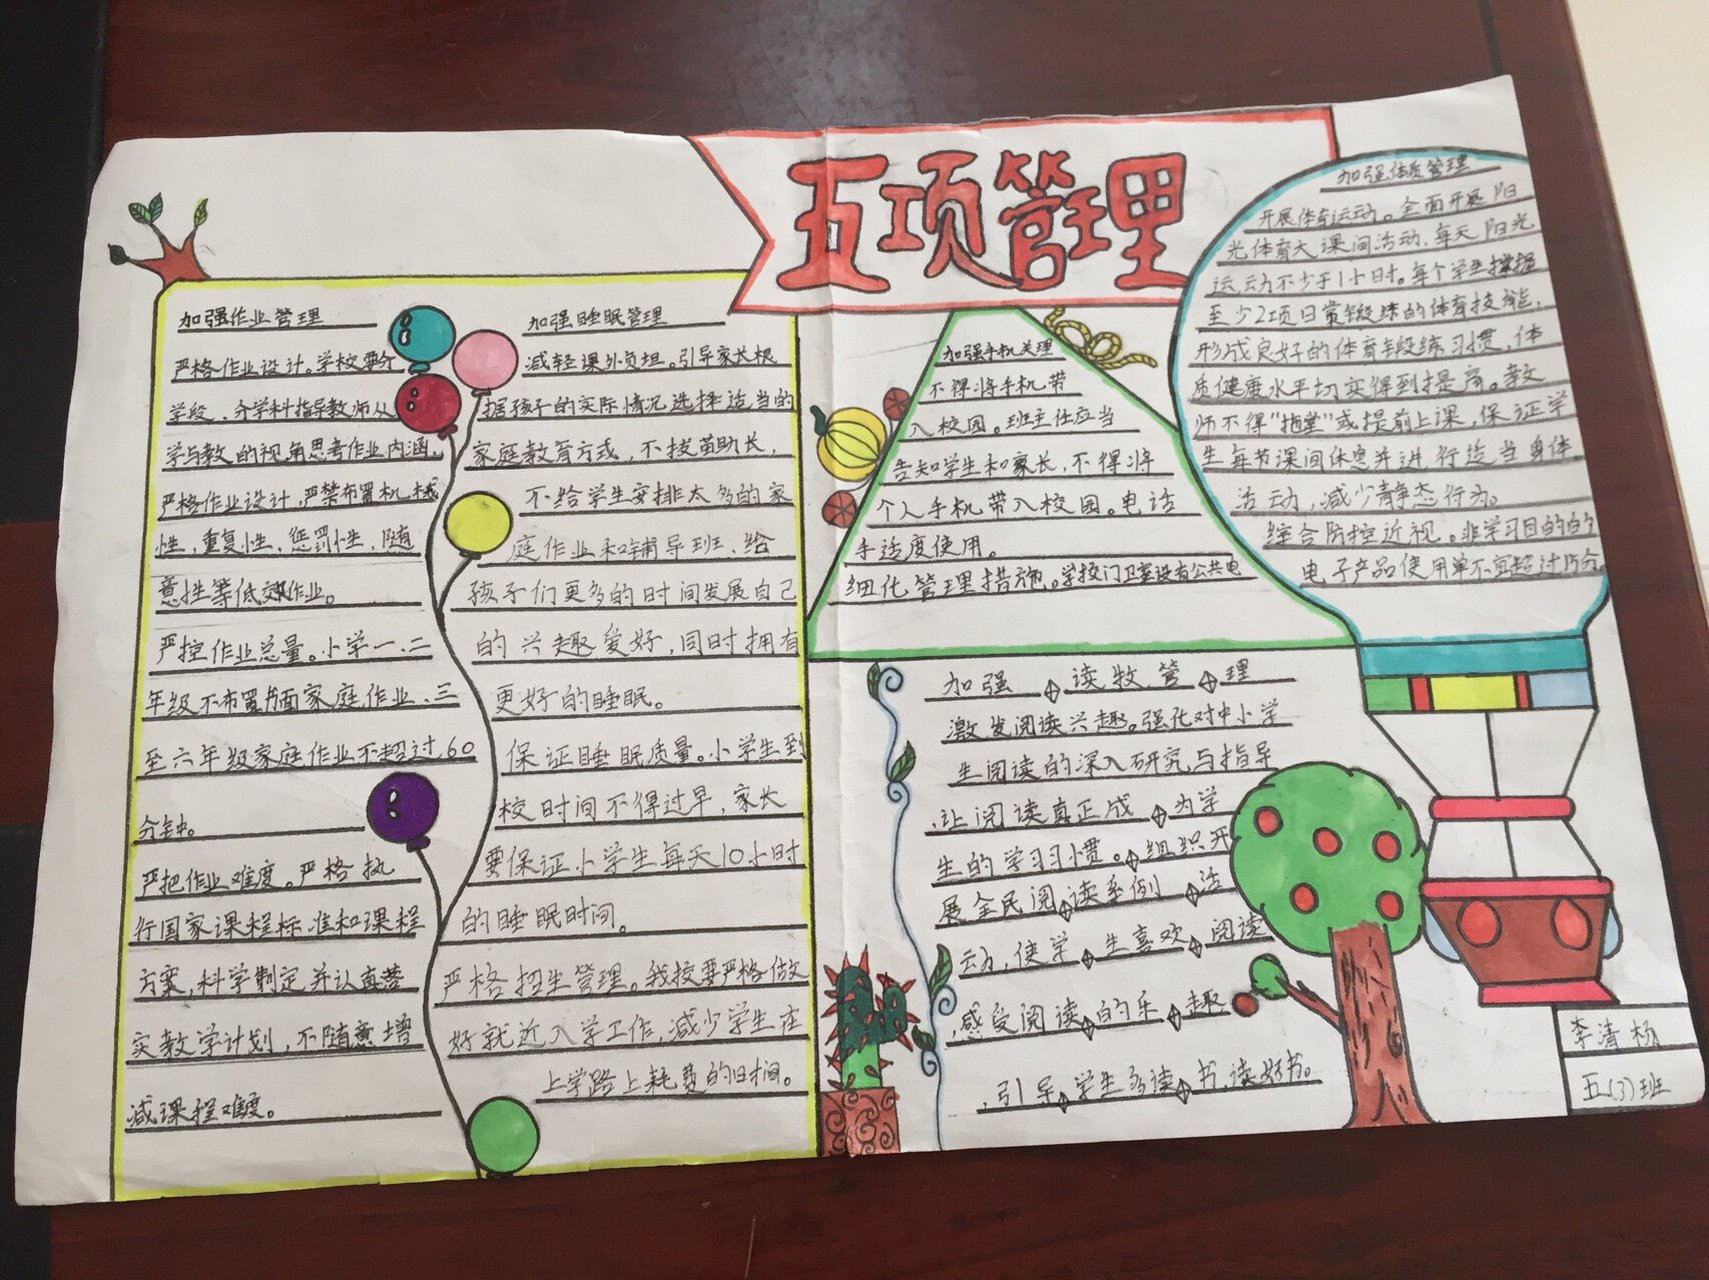 五项管理
加强作业管理
严格作业设计。学校要分
学段、分学科指导教师从
学与教的视角思考作业内涵,
严格作业设计,严禁布置机械
性,重复性,惩罚性,随
意性等低效作业。
严控作业总量。小学一、二
年级不布置书面家庭作业、三
至六年级家庭作业不超过60
分钟。
严把作业难度。严格执
行国家课程标准和课程
方案,科学制定并认真落
实教学计划,不随意增
减课程难度。
加强睡眠管理
减轻课外负担。引导家长根
据孩子的实际情况选择适当的
家庭教育方式,不拔苗助长,
不给学生安排太多的家
庭作业和辅导班、给
孩子们更多的时间发展自己
的兴趣爱好,同时拥有
更好的睡眠。
保证睡眠质量。小学生到
校时间不得过早,家长
要保证小学生每天10小时
的睡眠时间。
严格招生管理。我校要严格做
好就近入学工作,减少学生在
上学路上耗费的时间。
加强手机关理
不得将手机带
入校园。班主任应当
告知学生和家长,不得将
个人手机带入校园。电话
手适度使用。
细化管理措施。学校门卫室设有公共电
加强体质管理
开展体育运动。全面开展阳
光体育大课间活动,每天阳光
运动不少于1小时。每个学生掌握
至少2项日常锻练的体育技能,
形成良好的体育锻练习惯,体
质健康水平切实得到提高。教
师不得“拖堂”或提前上课,保证学
生每节课间休息并进行适当身体
活动,减少静态行为。
综合防控近视。非学习目的的
电子产品使用单不宜超过15分。
加强读牧管理
激发阅读兴趣。强化对中小学
生阅读的深入研究与指导
,让阅读真正成为学
生的学习习惯。组织开
展全民阅读系列活
动,使学生喜欢阅读
,感受阅读的乐趣
,引导学生多读书,读好书。
李清杨
五(3)班